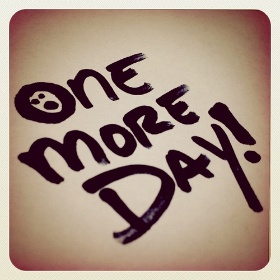 ONE
MORE
DAY!